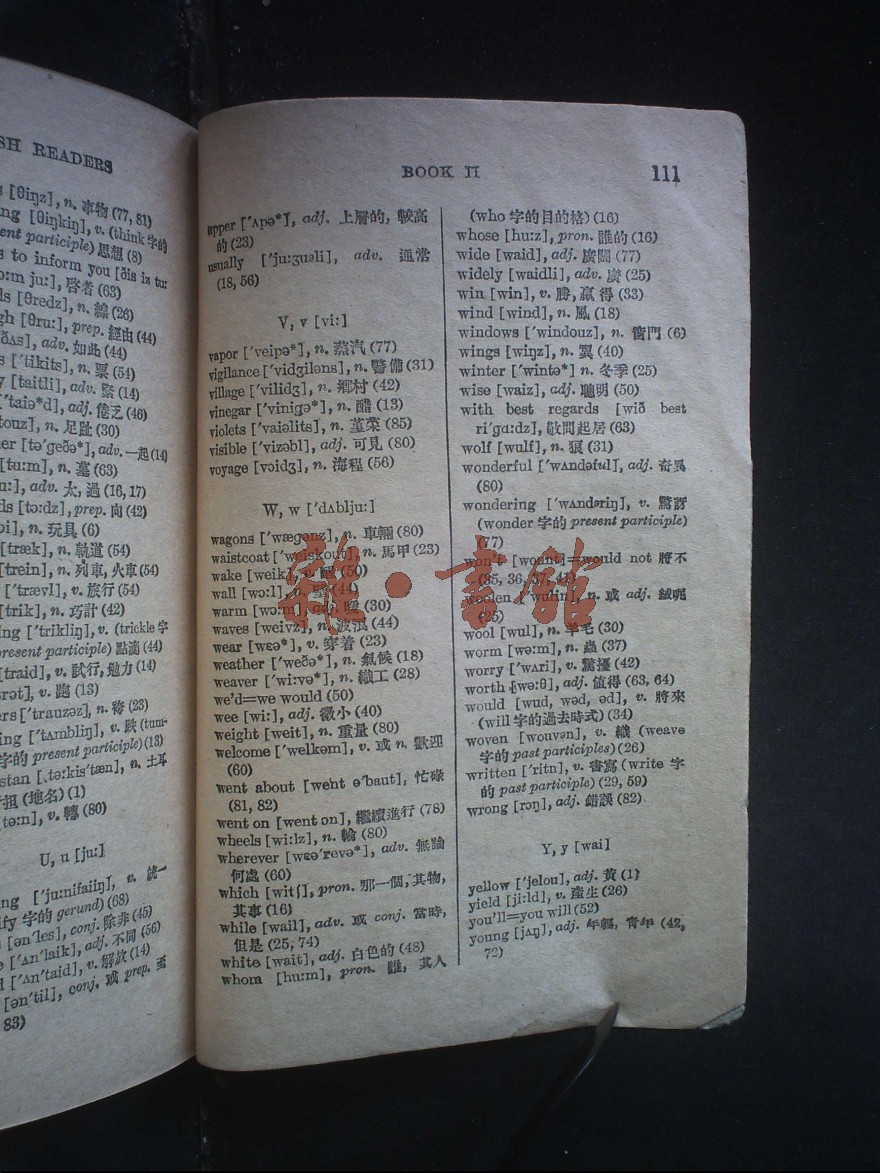 SH READERS
s [θiŋz], n. 事物 (77, 81)
ing [θiŋkiŋ], v. (think 字的
ent participle) 思想 (8)
s to inform you [ðis iz tu:
o:m ju:], 啓者 (63)
ds [θredz], n. 線 (26)
gh [θru:], prep. 經由 (44)
ðʌs], adv. 如此 (44)
s ['tikits], n. 票 (54)
y [taitli], adv. 緊 (14)
['taiə*d], adj. 倦乏 (46)
touz], n. 足趾 (30)
her [tə'geðə*], adv. 一起 (14)
[tu:m], n. 墓 (63)
u:], adv. 太, 過 (16, 17)
ds [tɔ:dz], prep. 向 (42)
oi], n. 玩具 (6)
[træk], n. 軌道 (54)
[trein], n. 列車, 火車 (54)
['trævl], v. 旅行 (54)
[trik], n. 巧計 (42)
ing ['trikliŋ], v. (trickle 字
present participle) 點滴 (44)
[traid], v. 試行, 勉力 (14)
trɔt], v. 跑 (13)
ers ['trauzəz], n. 袴 (23)
ing ['tʌmbliŋ], v. 跌 (tum-
字的 present participle) (13)
stan [ˌtə:kis'tæn], n. 土耳
斯坦 (地名) (1)
tə:n], v. 轉 (80)
U, u [ju:]
ing ['ju:nifaiiŋ], v. 統一
ify 字的 gerund) (68)
[ən'les], conj. 除非 (45)
e ['ʌn'laik], adj. 不同 (56)
d ['ʌn'taid], v. 解放 (14)
[ən'til], conj. 或 prep. 至
83)
BOOK II 111
upper ['ʌpə*], adj. 上層的, 較高
的 (23)
usually ['ju:ʒuəli], adv. 通常
(18, 56)
V, v [vi:]
vapor ['veipə*], n. 蒸汽 (77)
vigilance ['vidʒiləns], n. 警備 (31)
village ['vilidʒ], n. 鄉村 (42)
vinegar ['vinigə*], n. 醋 (13)
violets ['vaiəlits], n. 堇菜 (85)
visible ['vizəbl], adj. 可見 (80)
voyage [vɔidʒ], n. 海程 (56)
W, w ['dʌblju:]
wagons ['wægənz], n. 車輛 (80)
waistcoat ['weiskout], n. 馬甲 (23)
wake [weik], v. 醒 (50)
wall [wɔ:l], n. 墻 (44)
warm [wɔ:m], adj. 暖 (30)
waves [weivz], n. 波浪 (44)
wear [wɛə*], v. 穿着 (23)
weather ['weðə*], n. 氣候 (18)
weaver ['wi:və*], n. 織工 (28)
we'd=we would (50)
wee [wi:], adj. 微小 (40)
weight [weit], n. 重量 (80)
welcome ['welkəm], v. 或 n. 歡迎
(60)
went about [weht ə'baut], 忙碌
(81, 82)
went on [went on], 繼續進行 (78)
wheels [wi:lz], n. 輪 (80)
wherever [wɛə'revə*], adv. 無論
何處 (60)
which [witʃ], pron. 那一個, 其物,
其事 (16)
while [wail], adv. 或 conj. 當時,
但是 (25, 74)
white [wait], adj. 白色的 (48)
whom [hu:m], pron. 誰, 其人
(who 字的目的格) (16)
whose [hu:z], pron. 誰的 (16)
wide [waid], adj. 廣闊 (77)
widely [waidli], adv. 廣 (25)
win [win], v. 勝, 贏得 (33)
wind [wind], n. 風 (18)
windows ['windouz], n. 窗門 (6)
wings [wiŋz], n. 翼 (40)
winter ['wintə*] n. 冬季 (25)
wise [waiz], adj. 聰明 (50)
with best regards [wið best
ri'gɑ:dz], 敬問起居 (63)
wolf [wulf], n. 狼 (31)
wonderful ['wʌndəful], adj. 奇異
(80)
wondering ['wʌndəriŋ], v. 驚訝
(wonder 字的 present participle)
(77)
won't [wount]=would not 將不
(35, 36, 37, 41)
woolen ['wulin], n. 或 adj. 絨呢
(25)
wool [wul], n. 羊毛 (30)
worm [wə:m], n. 蟲 (37)
worry ['wʌri], v. 驚擾 (42)
worth [wə:θ], adj. 值得 (63, 64)
would [wud, wəd, əd], v. 將來
(will 字的過去時式) (34)
woven [wouvən], v. 織 (weave
字的 past participles) (26)
written ['ritn], v. 書寫 (write 字
的 past participle) (29, 59)
wrong [rɔŋ], adj. 錯誤 (82)
Y, y [wai]
yellow ['jelou], adj. 黃 (1)
yield [ji:ld], v. 產生 (26)
you'll=you will (52)
young [jʌŋ], adj. 年輕, 青年 (42,
72)
雜·書館